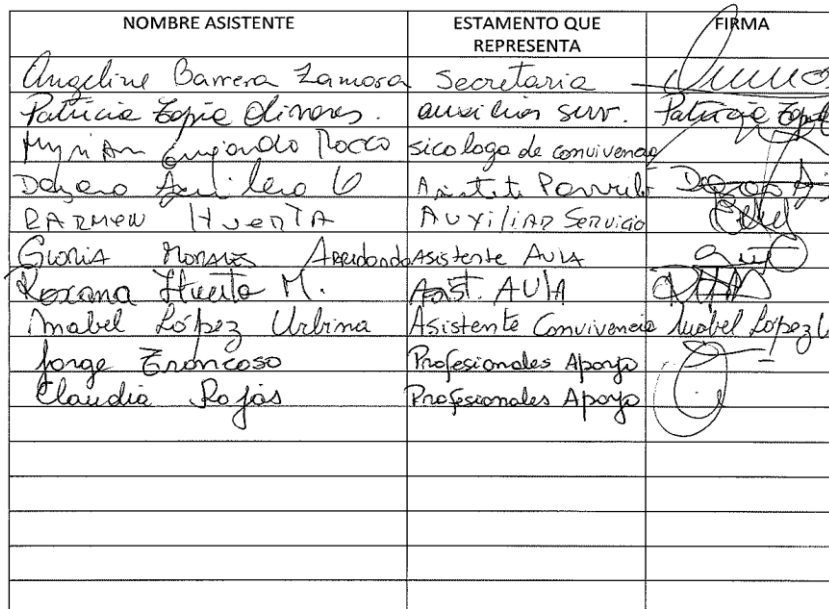 NOMBRE ASISTENTE ESTAMENTO QUE REPRESENTA FIRMA
Angeline Barrera Zamora Secretaria
Patricia Tapia Olivares. auxiliar serv. Patricia Tapia
Myriam Rocco sicologa de convivencia
Dayana
CARMEN HUERTA AUXILIAR Servicio
Gloria Morales Arredondo Asistente AULA
Roxana Huerta M. Asist. AULA
Mabel López Urbina Asistente Convivencia Mabel López U
Jorge Troncoso Profesionales Apoyo
Claudia Rojas Profesionales Apoyo